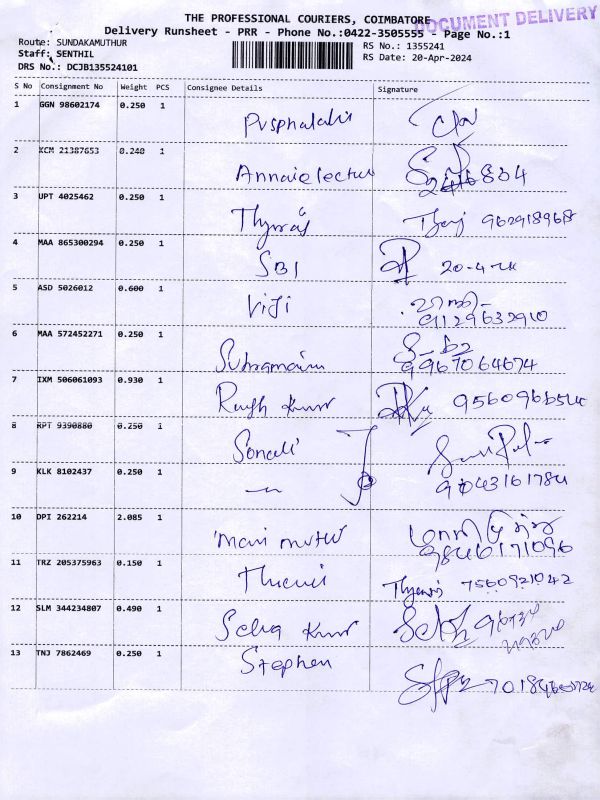 THE PROFESSIONAL COURIERS, COIMBATORE
DOCUMENT DELIVERY
Delivery Runsheet - PRR - Phone No.:0422-3505555 - Page No.:1
Route: SUNDAKAMUTHUR
RS No.: 1355241
Staff: SENTHIL
RS Date: 20-Apr-2024
DRS No.: DCJB135524101
S No Consignment No Weight PCS Consignee Details Signature
1 GGN 98602174 0.250 1
2 KCM 21387653 0.240 1 Annaielectur
3 UPT 4025462 0.250 1
4 MAA 865300294 0.250 1 SBI 20-4-24
5 ASD 5026012 0.600 1 Viji
9129632910
6 MAA 572452271 0.250 1
9967064674
7 IXM 506061093 0.930 1
8 RPT 9390880 0.250 1 Sonali
9 KLK 8102437 0.250 1
9043161784
10 DPI 262214 2.085 1
9846171096
11 TRZ 205375963 0.150 1 7560921042
12 SLM 344234807 0.490 1
13 TNJ 7862469 0.250 1 Stephen